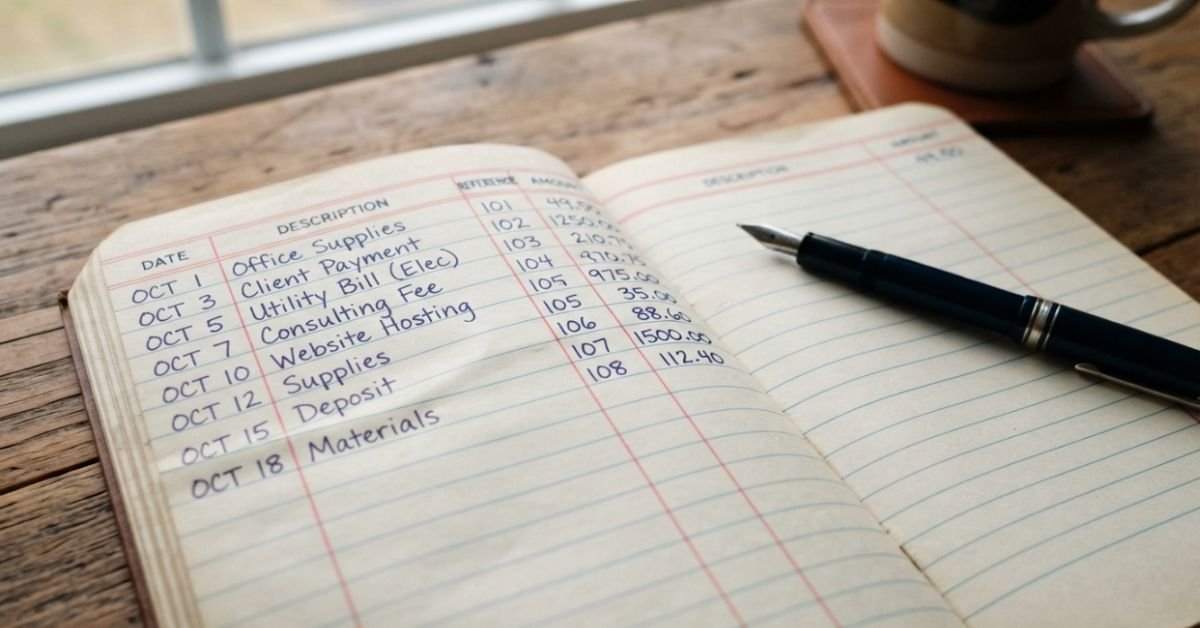 DATE DESCRIPTION REFERENCE AMOUNT
OCT 1 Office Supplies 101
OCT 3 Client Payment 102 1250.00
OCT 5 Utility Bill (Elec) 103 210.75
OCT 7 Consulting Fee 104
OCT 10 Website Hosting 105 975.00
OCT 12 Supplies 105 35.00
106 88.60
OCT 15 Deposit 107 1500.00
OCT 18 Materials 108 112.40
DESCRIPTION AMOUNT